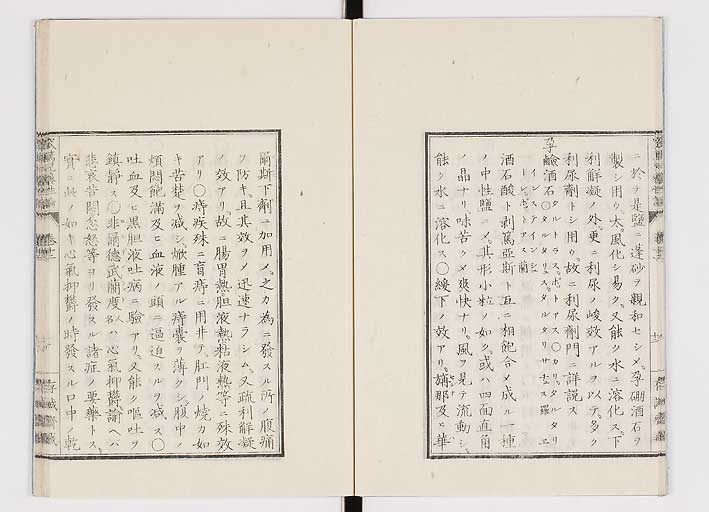 ニ於テ是鹽ニ蓬砂ヲ親和セシメ。孕硼酒石ヲ
製シ用ウ。太。風化シ易ク。又能ク水ニ溶化ス。下
利解凝ノ外。更ニ利尿ノ峻效アルヲ以テ。多ク
利尿劑トシ用ウ。故ニ利尿劑門ニ詳説ス
孕鹼酒石○タルトラス。ポトアス○カリ。タルタリ
酒石酸ト剥篤亞斯ト互ニ相飽合メ成ル一種
ノ中性鹽ニメ。其形小粒ノ如ク。或ハ四面直角
ノ晶ナリ味苦クメ爽快ナリ。風ヲ見テ流動シ。
能ク水ニ溶化ス○緩下ノ效アリ。旃那及ヒ華
爾斯下劑ニ加用メ。之カ為ニ發スル所ノ腹痛
ヲ防キ且其效ヲメ迅速ナラシム。又疏利解凝
ノ效アリ。故ニ腸胃熱胆液熱粘液熱等ニ殊效
アリ○痔疾殊ニ盲痔ニ用井テ。肛門ノ燒カ如
キ苦楚ヲ減シ。焮腫アル痔嚢ヲ薄クシ。腹中ノ
煩悶飽滿及ヒ血液ノ頭ニ逼迫スルヲ減ス○
吐血及ヒ黒胆液吐病ニ驗アリ。又能ク嘔吐ヲ
鎮靜ス○非爾德武蘭度人名ハ心氣抑鬱諭ヘハ
悲哀苦悶忿怒等ヨリ發スル諸症ノ要藥トス。
實ニ此ノ如キ心氣抑鬱ノ時發スル口中ノ乾